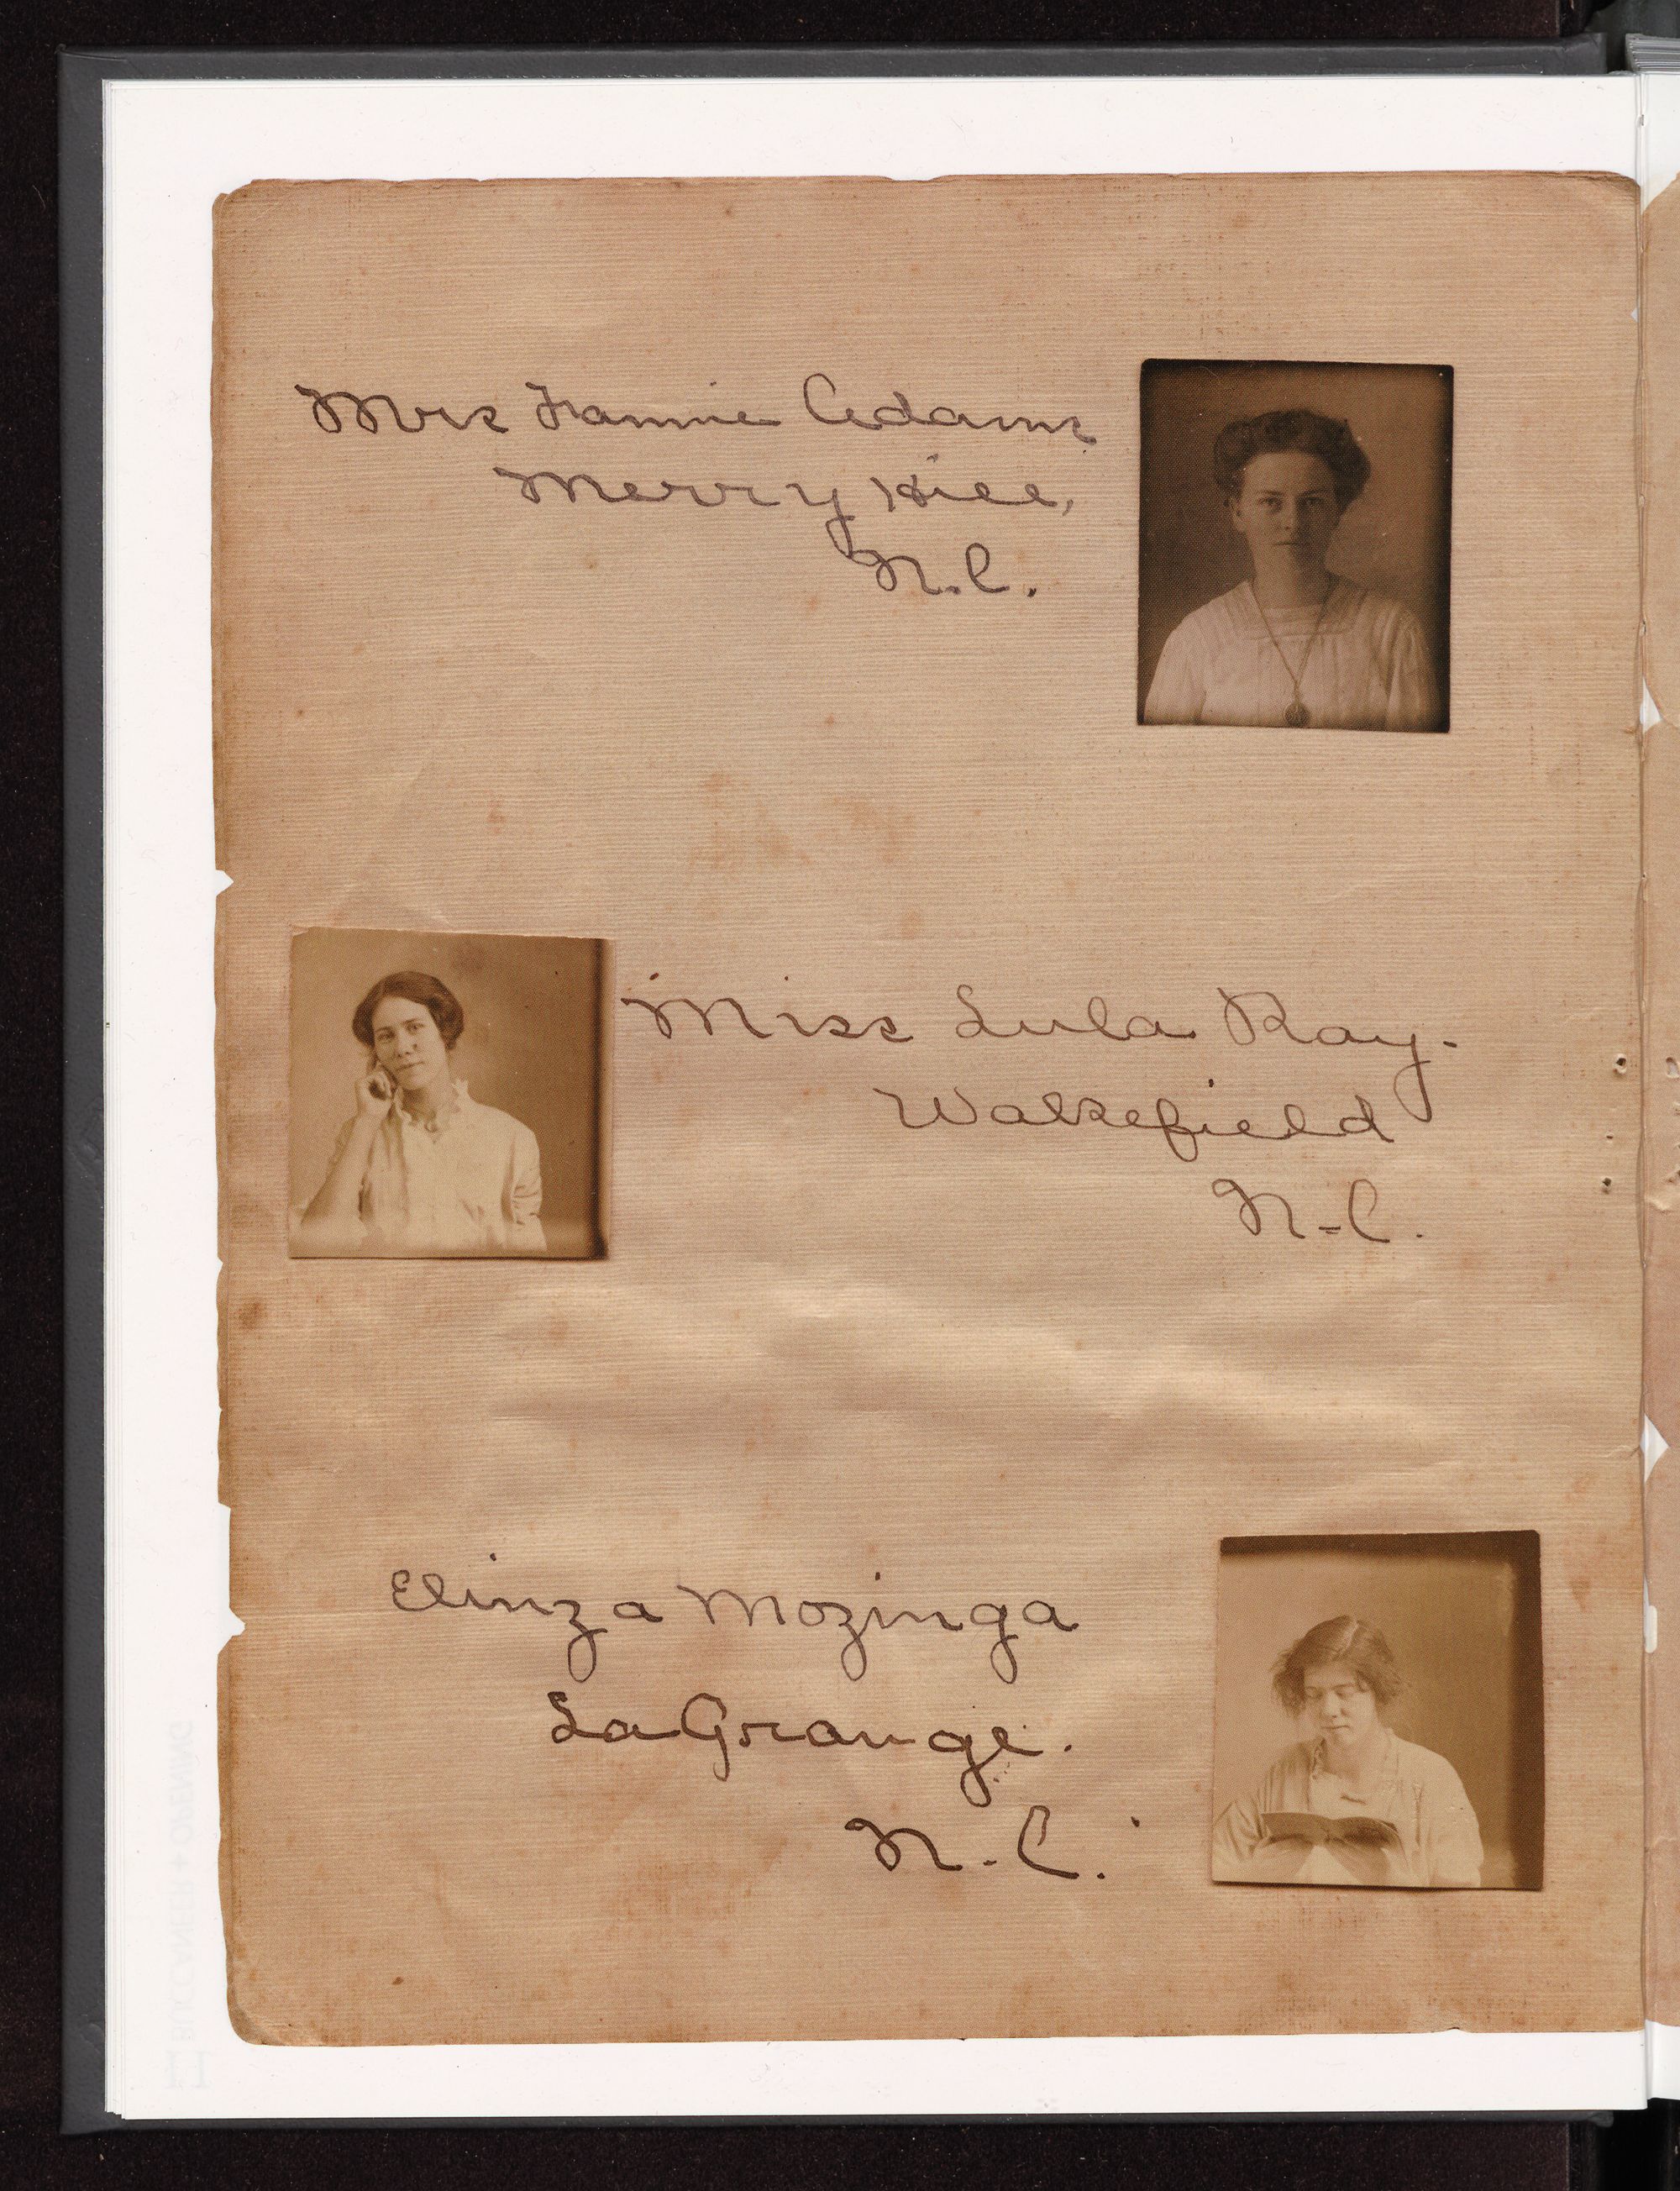 Mrs Fannie Adams
Merry Hill,
N.C.
Miss Lula Ray.
Wakefield
N-C.
Elinza Mozinga
LaGrange.
N-C.
BUCCANEER + OPENING